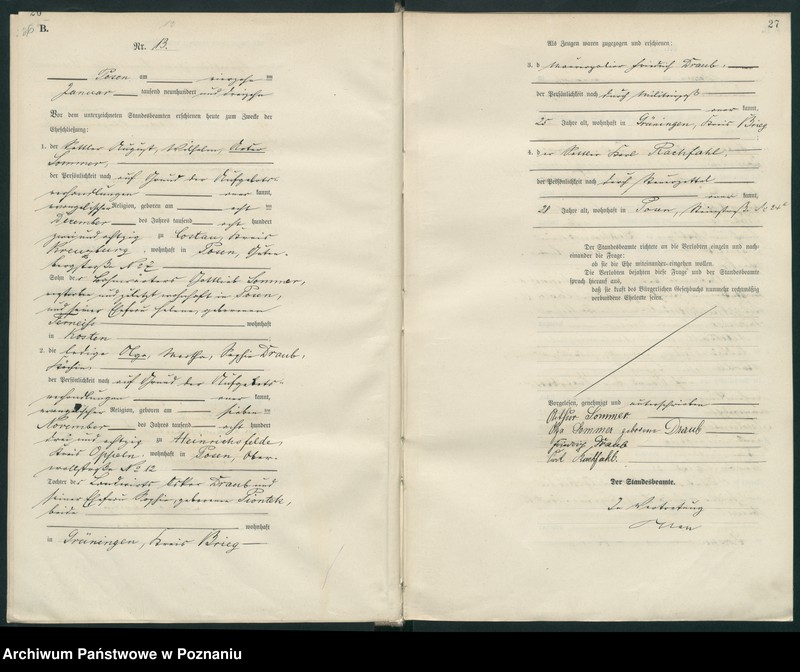 B.
Nr. 13.
Posen am
Januar tausend neunhundert und dreizehn
Vor dem unterzeichneten Standesbeamten erschienen heute zum Zwecke der
Eheschließung:
1. der Kellner August, Wilhelm, Artur
Sommer,
der Persönlichkeit nach auf Grund der Aufgebots-
verhandlungen kannt,
evangelischer Religion, geboren am acht ten
Dezember des Jahres tausend acht hundert
zwei und achtzig zu Costau, Kreis
Kreuzburg, wohnhaft in Posen,
Sohn des Gottlieb Sommer,
verstorben und zuletzt wohnhaft in Posen,
und seiner Ehefrau Helene, geborenen
wohnhaft
in Kosten
2. die ledige Olga, Martha, Sophie Draub,
der Persönlichkeit nach auf Grund der Aufgebots-
verhandlungen kannt,
evangelischer Religion, geboren am sieben ten
November des Jahres tausend acht hundert
drei und achtzig zu Heinrichsfelde,
Kreis Oppeln, wohnhaft in Posen, Ober-
wallstraße No 12
Tochter des Landwirts Draub und
seiner Ehefrau Sophie, geborenen
beide
wohnhaft
in Grüningen, Kreis Brieg
27
Als Zeugen waren zugezogen und erschienen:
3. der Friedrich Draub
der Persönlichkeit nach durch Militärpaß
kannt,
25 Jahre alt, wohnhaft in Grüningen, Kreis Brieg
4. der Kellner Karl Rachfahl,
der Persönlichkeit nach durch Steuerzettel
kannt,
28 Jahre alt, wohnhaft in Posen,
Der Standesbeamte richtete an die Verlobten einzeln und nach-
einander die Frage:
ob sie die Ehe miteinander eingehen wollen.
Die Verlobten bejahten diese Frage und der Standesbeamte
sprach hierauf aus,
daß sie kraft des Bürgerlichen Gesetzbuchs nunmehr rechtmäßig
verbundene Eheleute seien.
Vorgelesen, genehmigt und unterschrieben
Arthur Sommer
Olga Sommer geborene Draub
Friedrich Draub
Karl Rachfahl.
Der Standesbeamte.
In Vertretung
Archiwum Państwowe w Poznaniu